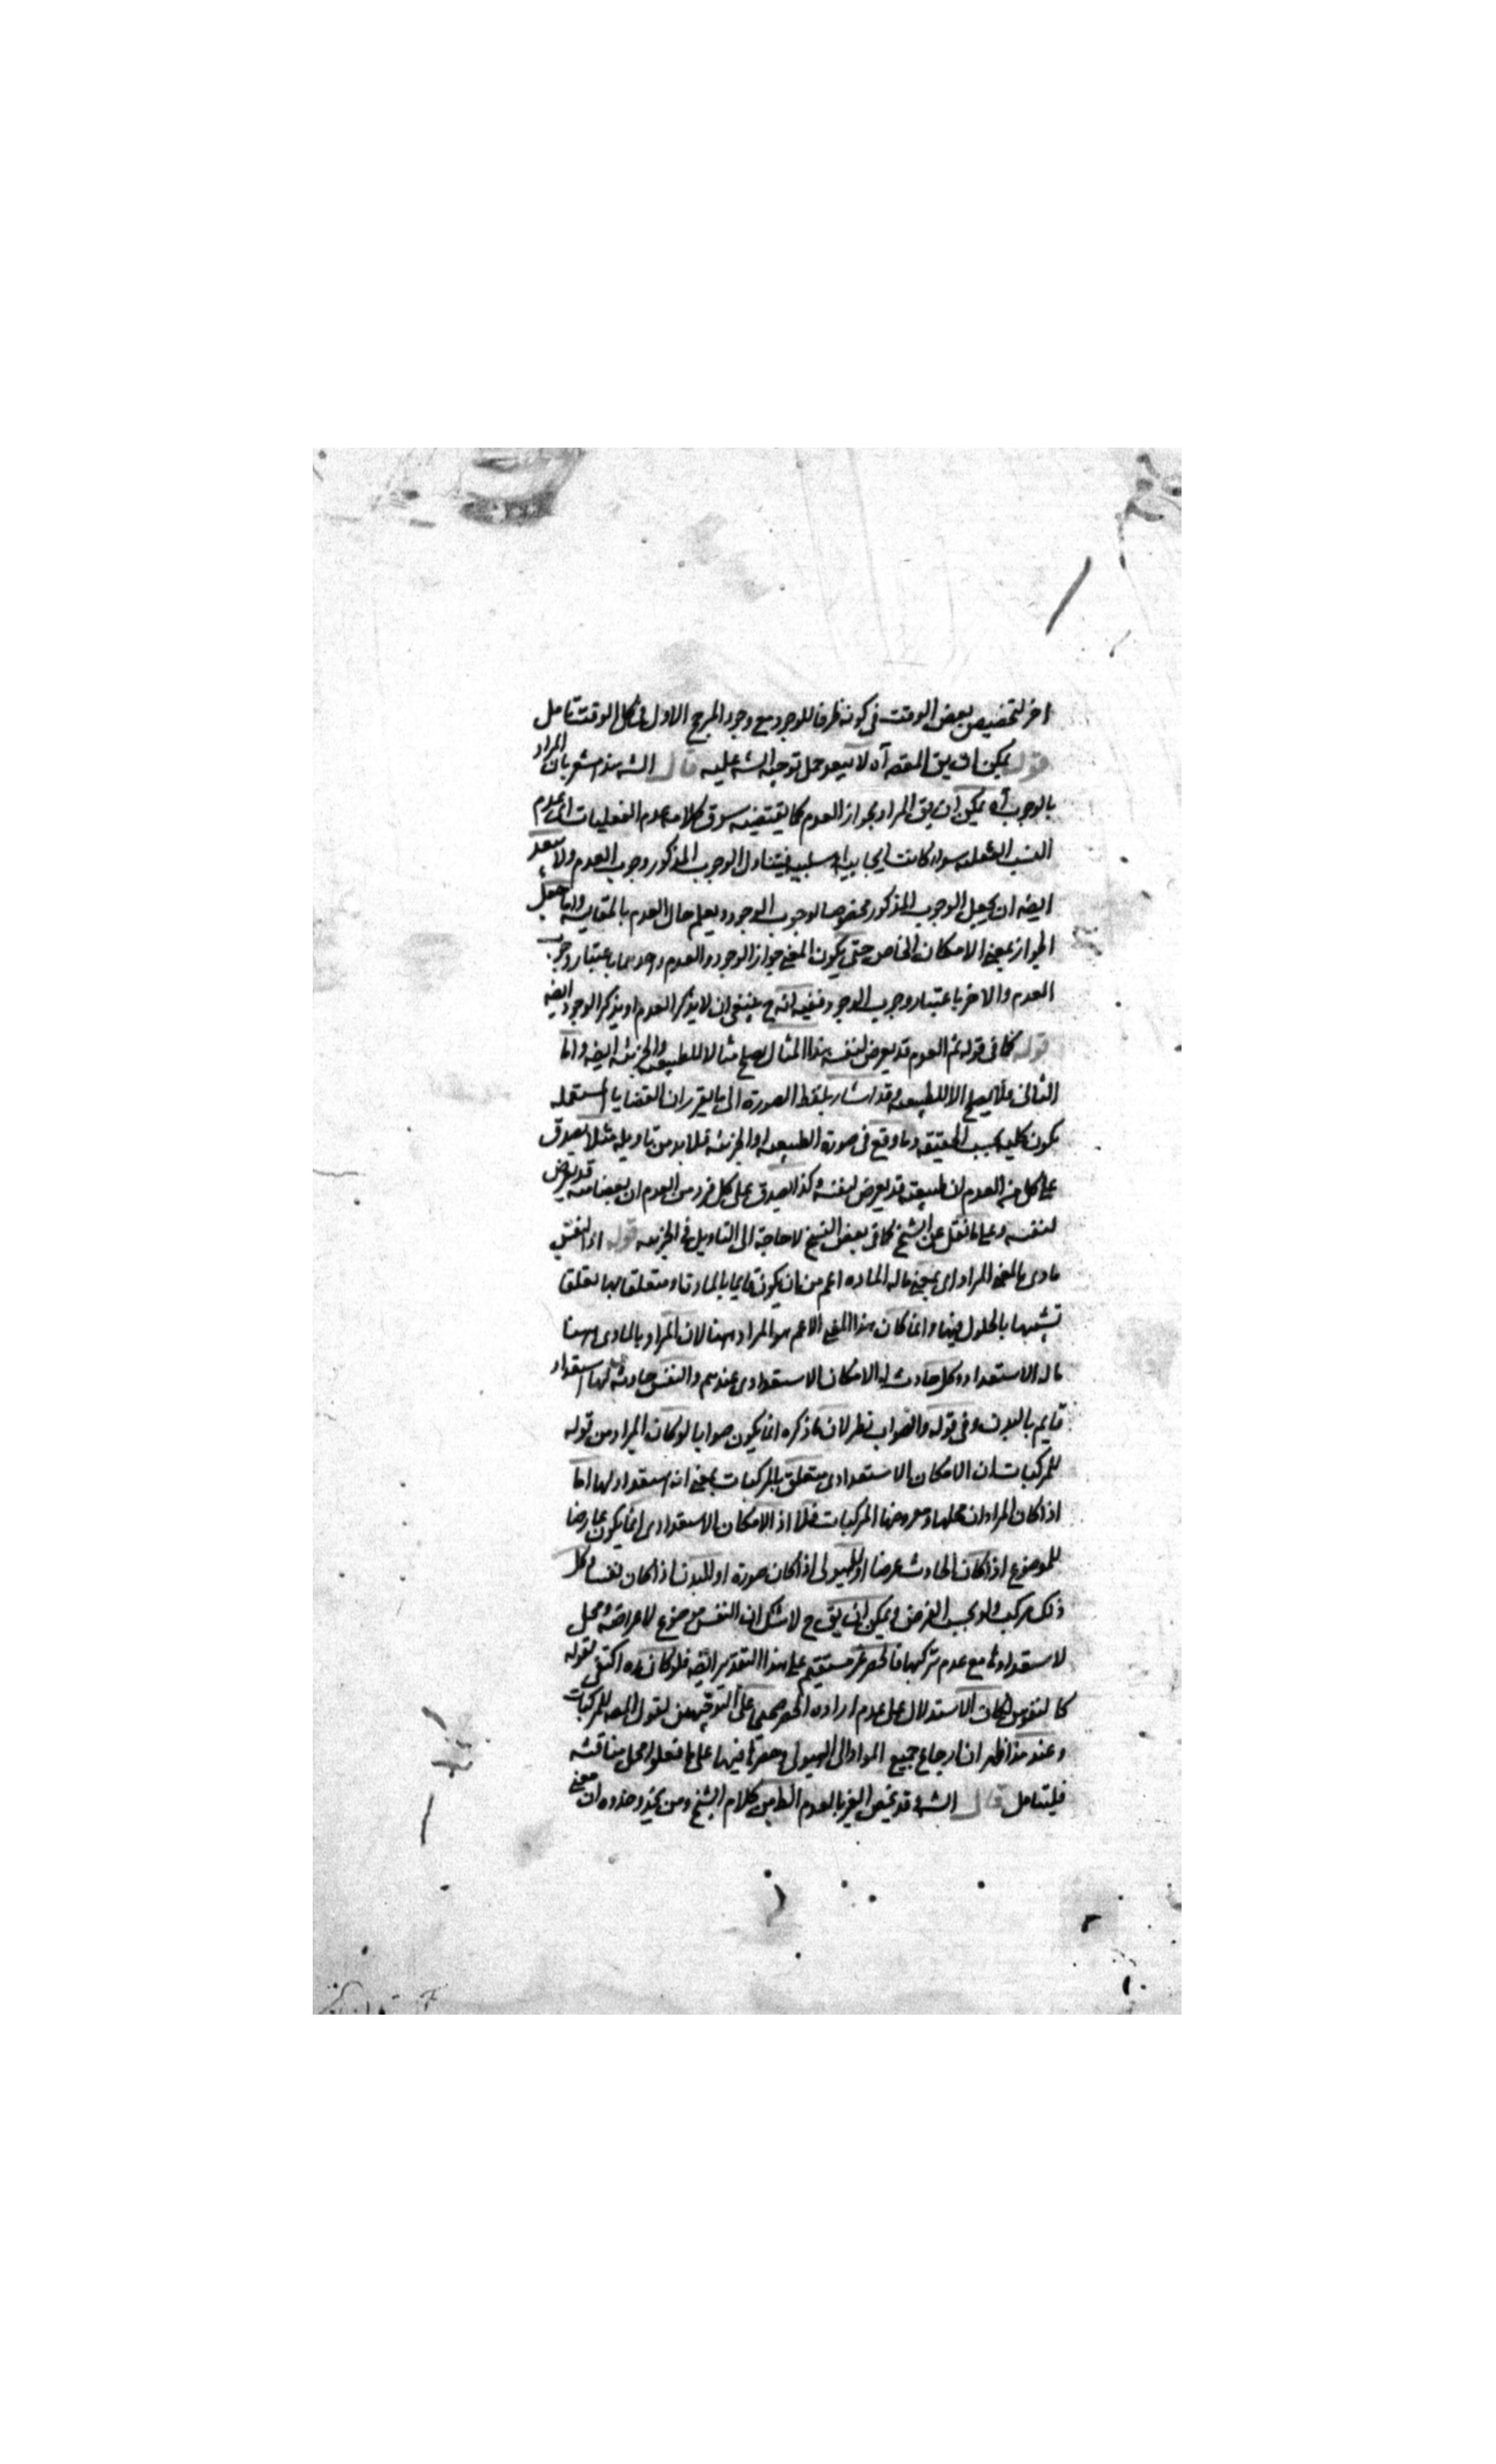 اخر لتخصيص بعض الوقت فى كونه ظرفا للوجود مع وجود المرجح الاول فى كل الوقت تامل
قوله يمكن ان يق المقصه آه لا يبعد حمل توجيه الشه عليه قال الشه هذا مشعر بان المراد
بالوجوب آه يمكن ان يق المراد بجواز العدم كما يقتضيه سوق كلامه عدم الفعليات اى عدم
النسب الفعليه سواء كانت ايجابيه او سلبيه فيتناول الوجوب المذكور وجوب العدم ولا يبعد
ايضه ان يجعل الوجوب المذكور مخصوصا لوجوب الوجود ويعلم حال العدم بالمقايسه واما جعل
الجواز بمعنى الامكان الخاص حتى يكون المعنى جواز الوجود والعدم احدهما باعتبار وجوب
العدم والاخر باعتبار وجوب الوجود ففيه انه ح ينبغى ان لا يذكر العدم او يذكر الوجود ايضه
قوله كما فى قوله ثم العدم قد يعرض لنفسه هذا المثال يصلح مثالا للطبيعيه والجزئيه ايضه واما
الثانى فلا يصلح الا للطبيعيه وقد اشار بلفظ الصورة الى ما يقرر ان القضايا المستعمله
يكون كليه بحسب الحقيقه وما وقع فى صورة الطبيعيه او الجزئيه فلا بد من تاويله مثلا يصدق
على كل من العدم ان طبيعته قد يعرض لنفسه وكذا يصدق على كل فرد من العدم ان بعضا منه قد يعرض
لنفسه وعلى ما نقل عن الشيخ كما فى بعض النسخ لا حاجة الى التاويل فى الجزئيه قوله اذ النفس
مادى بالمعنى المراد اى بمعنى ماله الماده اعم من ان يكون قايما بالمادة او متعلقا بها تعلقا
تشبيها بالحلول فيها وانما كان هذا المعنى الاعم هو المراد هنا لان المراد بالمادى هنا
ماله الاستعداد وكل حادث له الامكان الاستعدادى عندهم والنفس حادثه لها استعداد
قايم بالبدن وفى قوله والصواب نظر لان ما ذكره انما يكون صوابا لو كان المراد من قوله
للمركبات ان الامكان الاستعدادى متعلق بالمركبات بمعنى انه استعداد لها اما
اذا كان المراد ان محلها ومعروضها المركبات فلا اذ الامكان الاستعدادى انما يكون عارضا
للموضوع اذا كان الحادث عرضا او للهيولى اذا كان صورة او للبدن اذا كان نفسا وكل
ذلك مركب ولو بحسب الفرض ويمكن ان يق ح لا شك ان النفس موضوع لاعراضه ومحل
لاستعداداتها مع عدم تركبها فالحصر غير مستقيم على هذا التقدير ايضه فلو كان اكتفى بقوله
كالنفوس لكان الاستدلال على عدم ارادة الحصر على التوجيهين لقول المصه للمركبات
وعند هذا ظهر ان ارجاع جميع المواد الى الهيولى وحصرها فيها على ما فعلوا محل مناقشه
فليتامل قال الشه قد تخص الغير بالعدم الظ من كلام الشيخ ومن يحذو حذوه ان معنى